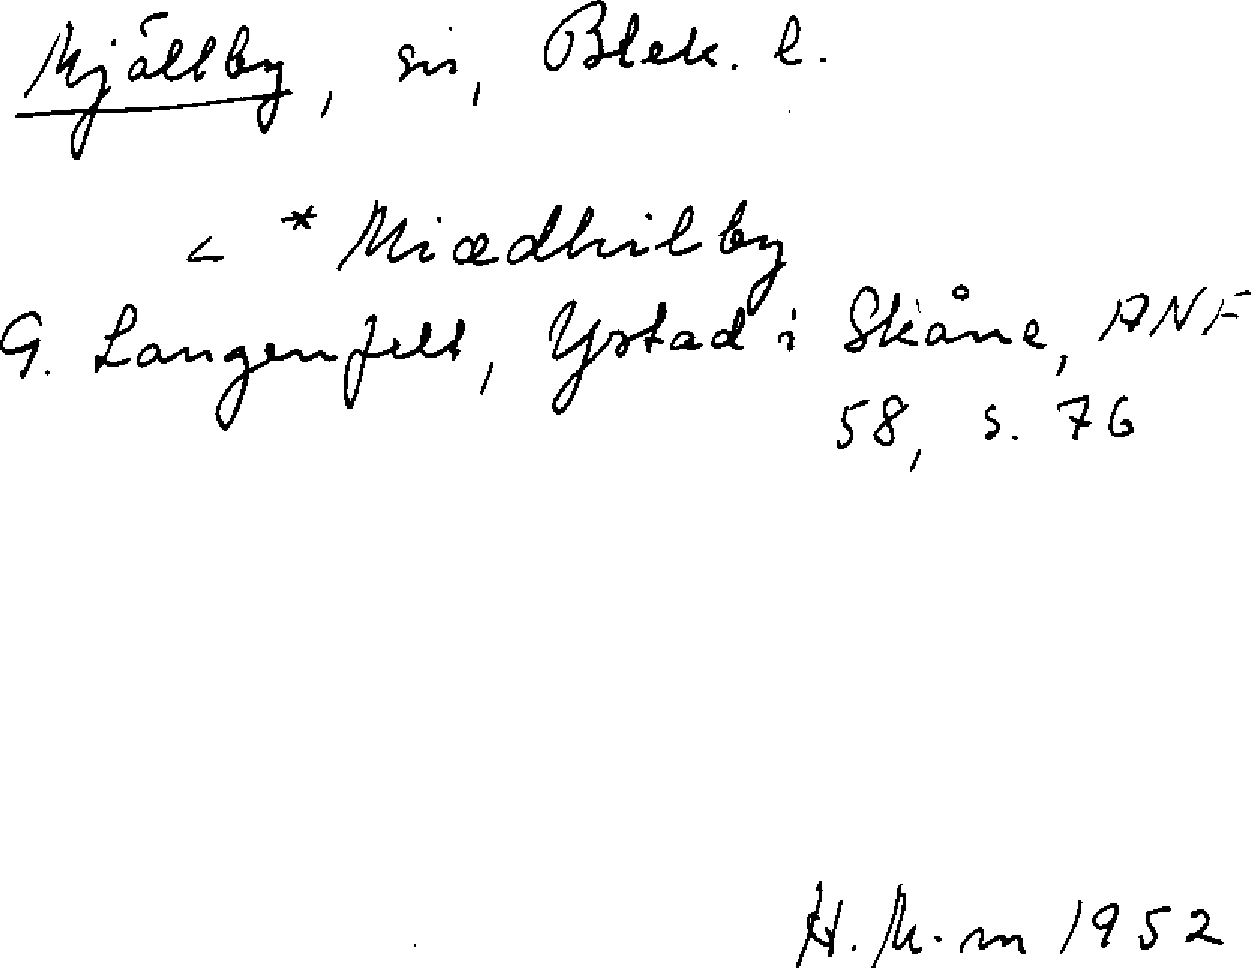 Mjällby, sn, Blek. l.
< * Miædhilby
G. Langenfelt, Ystad i Skåne, ANF
58, s. 76
H. M-m 1952